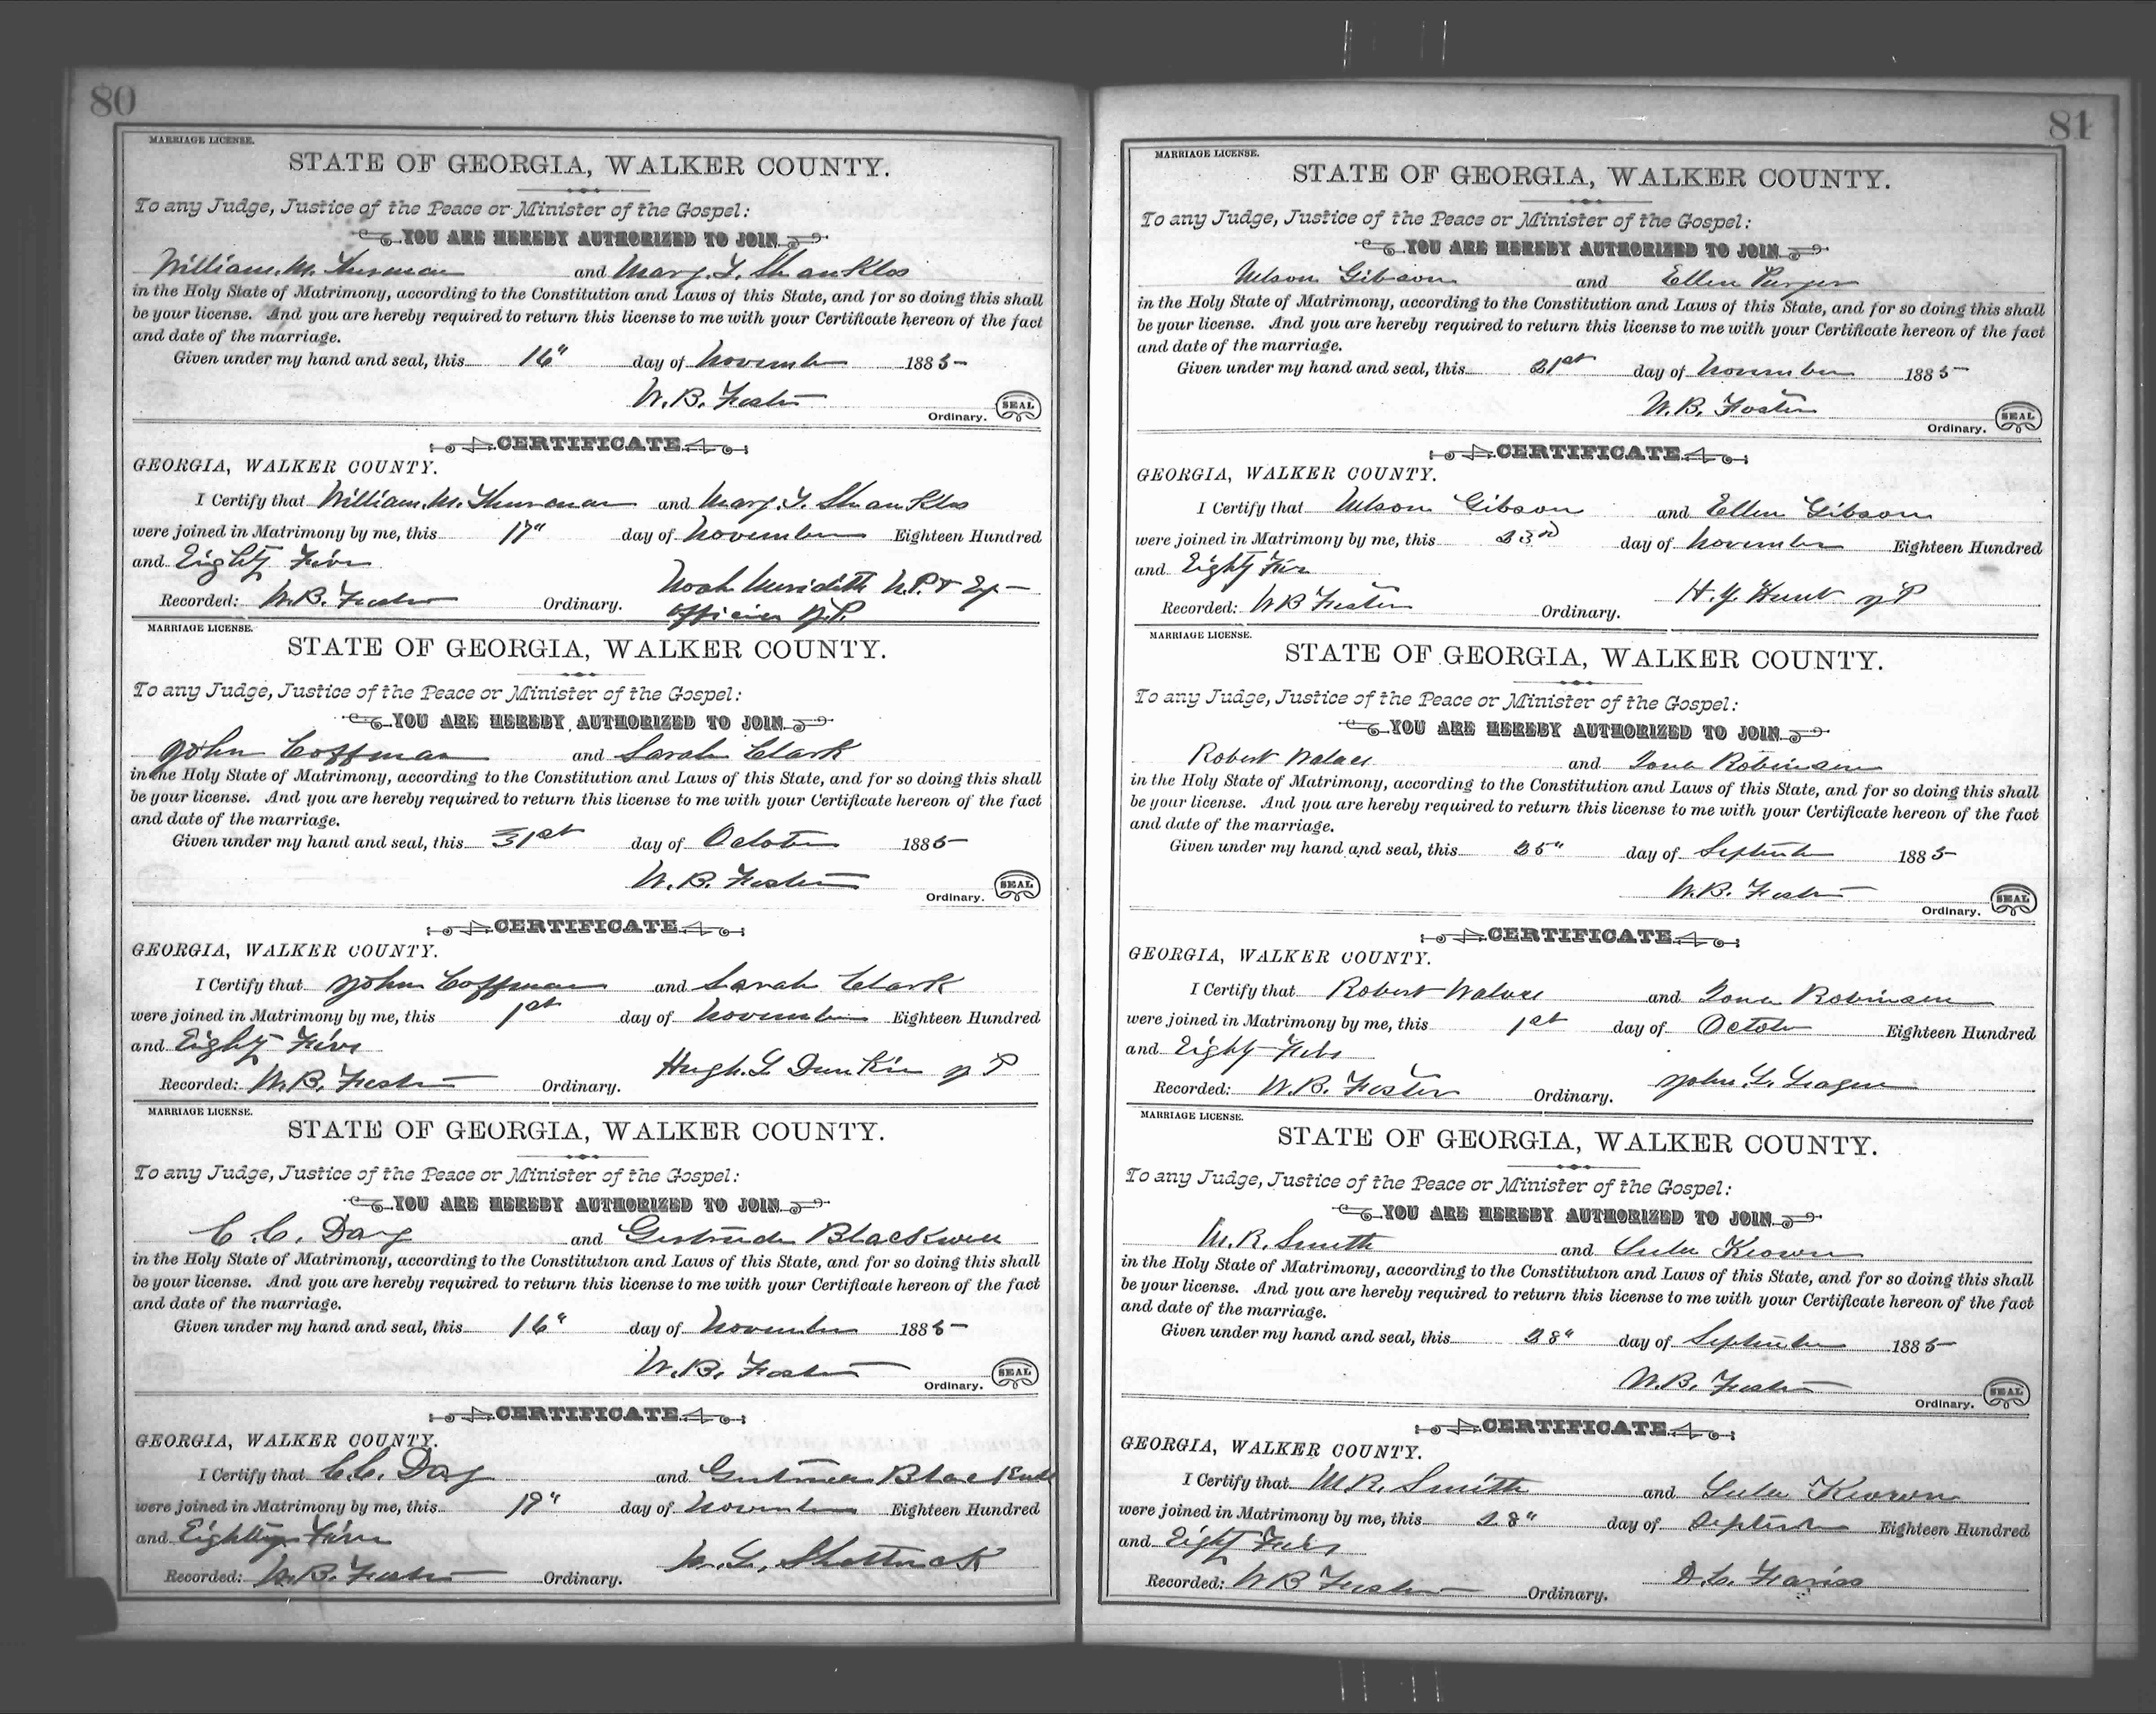 80
MARRIAGE LICENSE.
STATE OF GEORGIA, WALKER COUNTY.
To any Judge, Justice of the Peace or Minister of the Gospel:
YOU ARE HEREBY AUTHORIZED TO JOIN
William. M. Thurman and Mary. T. Shankles
in the Holy State of Matrimony, according to the Constitution and Laws of this State, and for so doing this shall
be your license. And you are hereby required to return this license to me with your Certificate hereon of the fact
and date of the marriage.
Given under my hand and seal, this 16" day of November 1885
W. B. Foster
Ordinary. SEAL
CERTIFICATE
GEORGIA, WALKER COUNTY.
I Certify that William. M. Thurman and Mary. T. Shankles
were joined in Matrimony by me, this 17" day of November Eighteen Hundred
and Eighty Five Noah Meridith N.P. & Ex
Recorded: W. B. Foster Ordinary. officio J.P.
MARRIAGE LICENSE.
STATE OF GEORGIA, WALKER COUNTY.
To any Judge, Justice of the Peace or Minister of the Gospel:
YOU ARE HEREBY AUTHORIZED TO JOIN
John Coffman and Sarah Clark
in the Holy State of Matrimony, according to the Constitution and Laws of this State, and for so doing this shall
be your license. And you are hereby required to return this license to me with your Certificate hereon of the fact
and date of the marriage.
Given under my hand and seal, this 31st day of October 1885
W. B. Foster
Ordinary. SEAL
CERTIFICATE
GEORGIA, WALKER COUNTY.
I Certify that John Coffman and Sarah Clark
were joined in Matrimony by me, this 1st day of November Eighteen Hundred
and Eighty Five
Recorded: W. B. Foster Ordinary. Hugh. L. Dunkin J P
MARRIAGE LICENSE.
STATE OF GEORGIA, WALKER COUNTY.
To any Judge, Justice of the Peace or Minister of the Gospel:
YOU ARE HEREBY AUTHORIZED TO JOIN
C. C. Day and Gertrude Blackwell
in the Holy State of Matrimony, according to the Constitution and Laws of this State, and for so doing this shall
be your license. And you are hereby required to return this license to me with your Certificate hereon of the fact
and date of the marriage.
Given under my hand and seal, this 16" day of November 1885
W. B. Foster
Ordinary. SEAL
CERTIFICATE
GEORGIA, WALKER COUNTY.
I Certify that C. C. Day and Gertrude Blackwell
were joined in Matrimony by me, this 19" day of November Eighteen Hundred
and Eighty Five
Recorded: W. B. Foster Ordinary. Shattuck
81
MARRIAGE LICENSE.
STATE OF GEORGIA, WALKER COUNTY.
To any Judge, Justice of the Peace or Minister of the Gospel:
YOU ARE HEREBY AUTHORIZED TO JOIN
Nelson Gibson and Ellen
in the Holy State of Matrimony, according to the Constitution and Laws of this State, and for so doing this shall
be your license. And you are hereby required to return this license to me with your Certificate hereon of the fact
and date of the marriage.
Given under my hand and seal, this 21st day of November 1885
W. B. Foster
Ordinary. SEAL
CERTIFICATE
GEORGIA, WALKER COUNTY.
I Certify that Nelson Gibson and Ellen Gibson
were joined in Matrimony by me, this 23rd day of November Eighteen Hundred
and Eighty Five
Recorded: W B Foster Ordinary. H. Y. Hunt J P
MARRIAGE LICENSE.
STATE OF GEORGIA, WALKER COUNTY.
To any Judge, Justice of the Peace or Minister of the Gospel:
YOU ARE HEREBY AUTHORIZED TO JOIN
Robert Walace and Iona Robinson
in the Holy State of Matrimony, according to the Constitution and Laws of this State, and for so doing this shall
be your license. And you are hereby required to return this license to me with your Certificate hereon of the fact
and date of the marriage.
Given under my hand and seal, this 25" day of September 1885
W. B. Foster
Ordinary. SEAL
CERTIFICATE
GEORGIA, WALKER COUNTY.
I Certify that Robert Walace and Iona Robinson
were joined in Matrimony by me, this 1st day of October Eighteen Hundred
and Eighty Five
Recorded: W. B. Foster Ordinary. John L. League
MARRIAGE LICENSE.
STATE OF GEORGIA, WALKER COUNTY.
To any Judge, Justice of the Peace or Minister of the Gospel:
YOU ARE HEREBY AUTHORIZED TO JOIN
M. R. Smith and Lula Keown
in the Holy State of Matrimony, according to the Constitution and Laws of this State, and for so doing this shall
be your license. And you are hereby required to return this license to me with your Certificate hereon of the fact
and date of the marriage.
Given under my hand and seal, this 28" day of September 1885
W. B. Foster
Ordinary. SEAL
CERTIFICATE
GEORGIA, WALKER COUNTY.
I Certify that M. R. Smith and Lula Keown
were joined in Matrimony by me, this 28" day of September Eighteen Hundred
and Eighty Five
Recorded: W B Foster Ordinary. D. C. Fariss